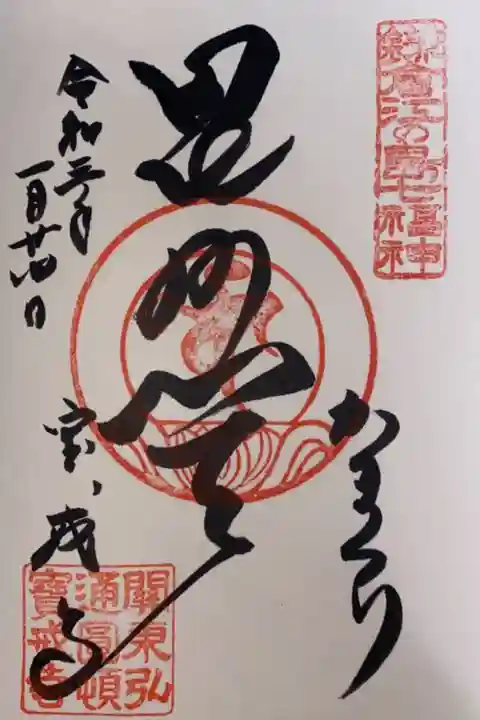 鎌倉江の島七福神
かまくら
毘沙門天
令和三年
一月廿四日
宝戒寺
關東弘
通圓頓
寶戒寺